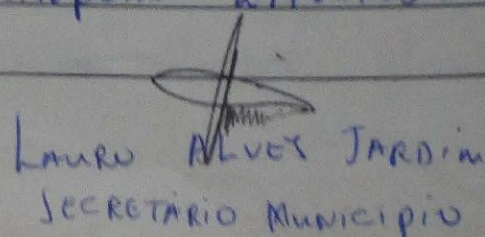 LAURO ALVES JARDIM
SECRETÁRIO MUNICIPIO